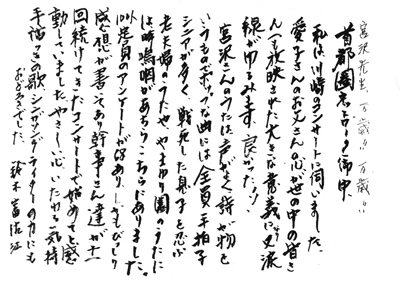 宮沢先生、万歳!! 万歳!!
首都圏ネットワーク御中、
私は川崎のコンサートに伺いました。
愛子さんのお父さんの心が世の中の皆さ
んへも放映された大きな意義に〆涙
線がゆるみます、良かった!!
宮沢さんのうたは声がよく詩が物を
いうもの、ポップな曲には全員手拍子
シニアが多く、戦死した息子を忍ぶ
老夫婦のうたや、やまゆり園のうたに
は時嗚咽があちらこちらにありました。
出、皆員のアンケートが好あり、しきもびっしり
感想が書いてあり幹事さん達が十一
回続けてきたコンサートで始めてと感
動していました、やさしい心、いたわる気持
手描きの歌、シンガーソングライターの力にも
おどろきでした。 鈴木富佐江